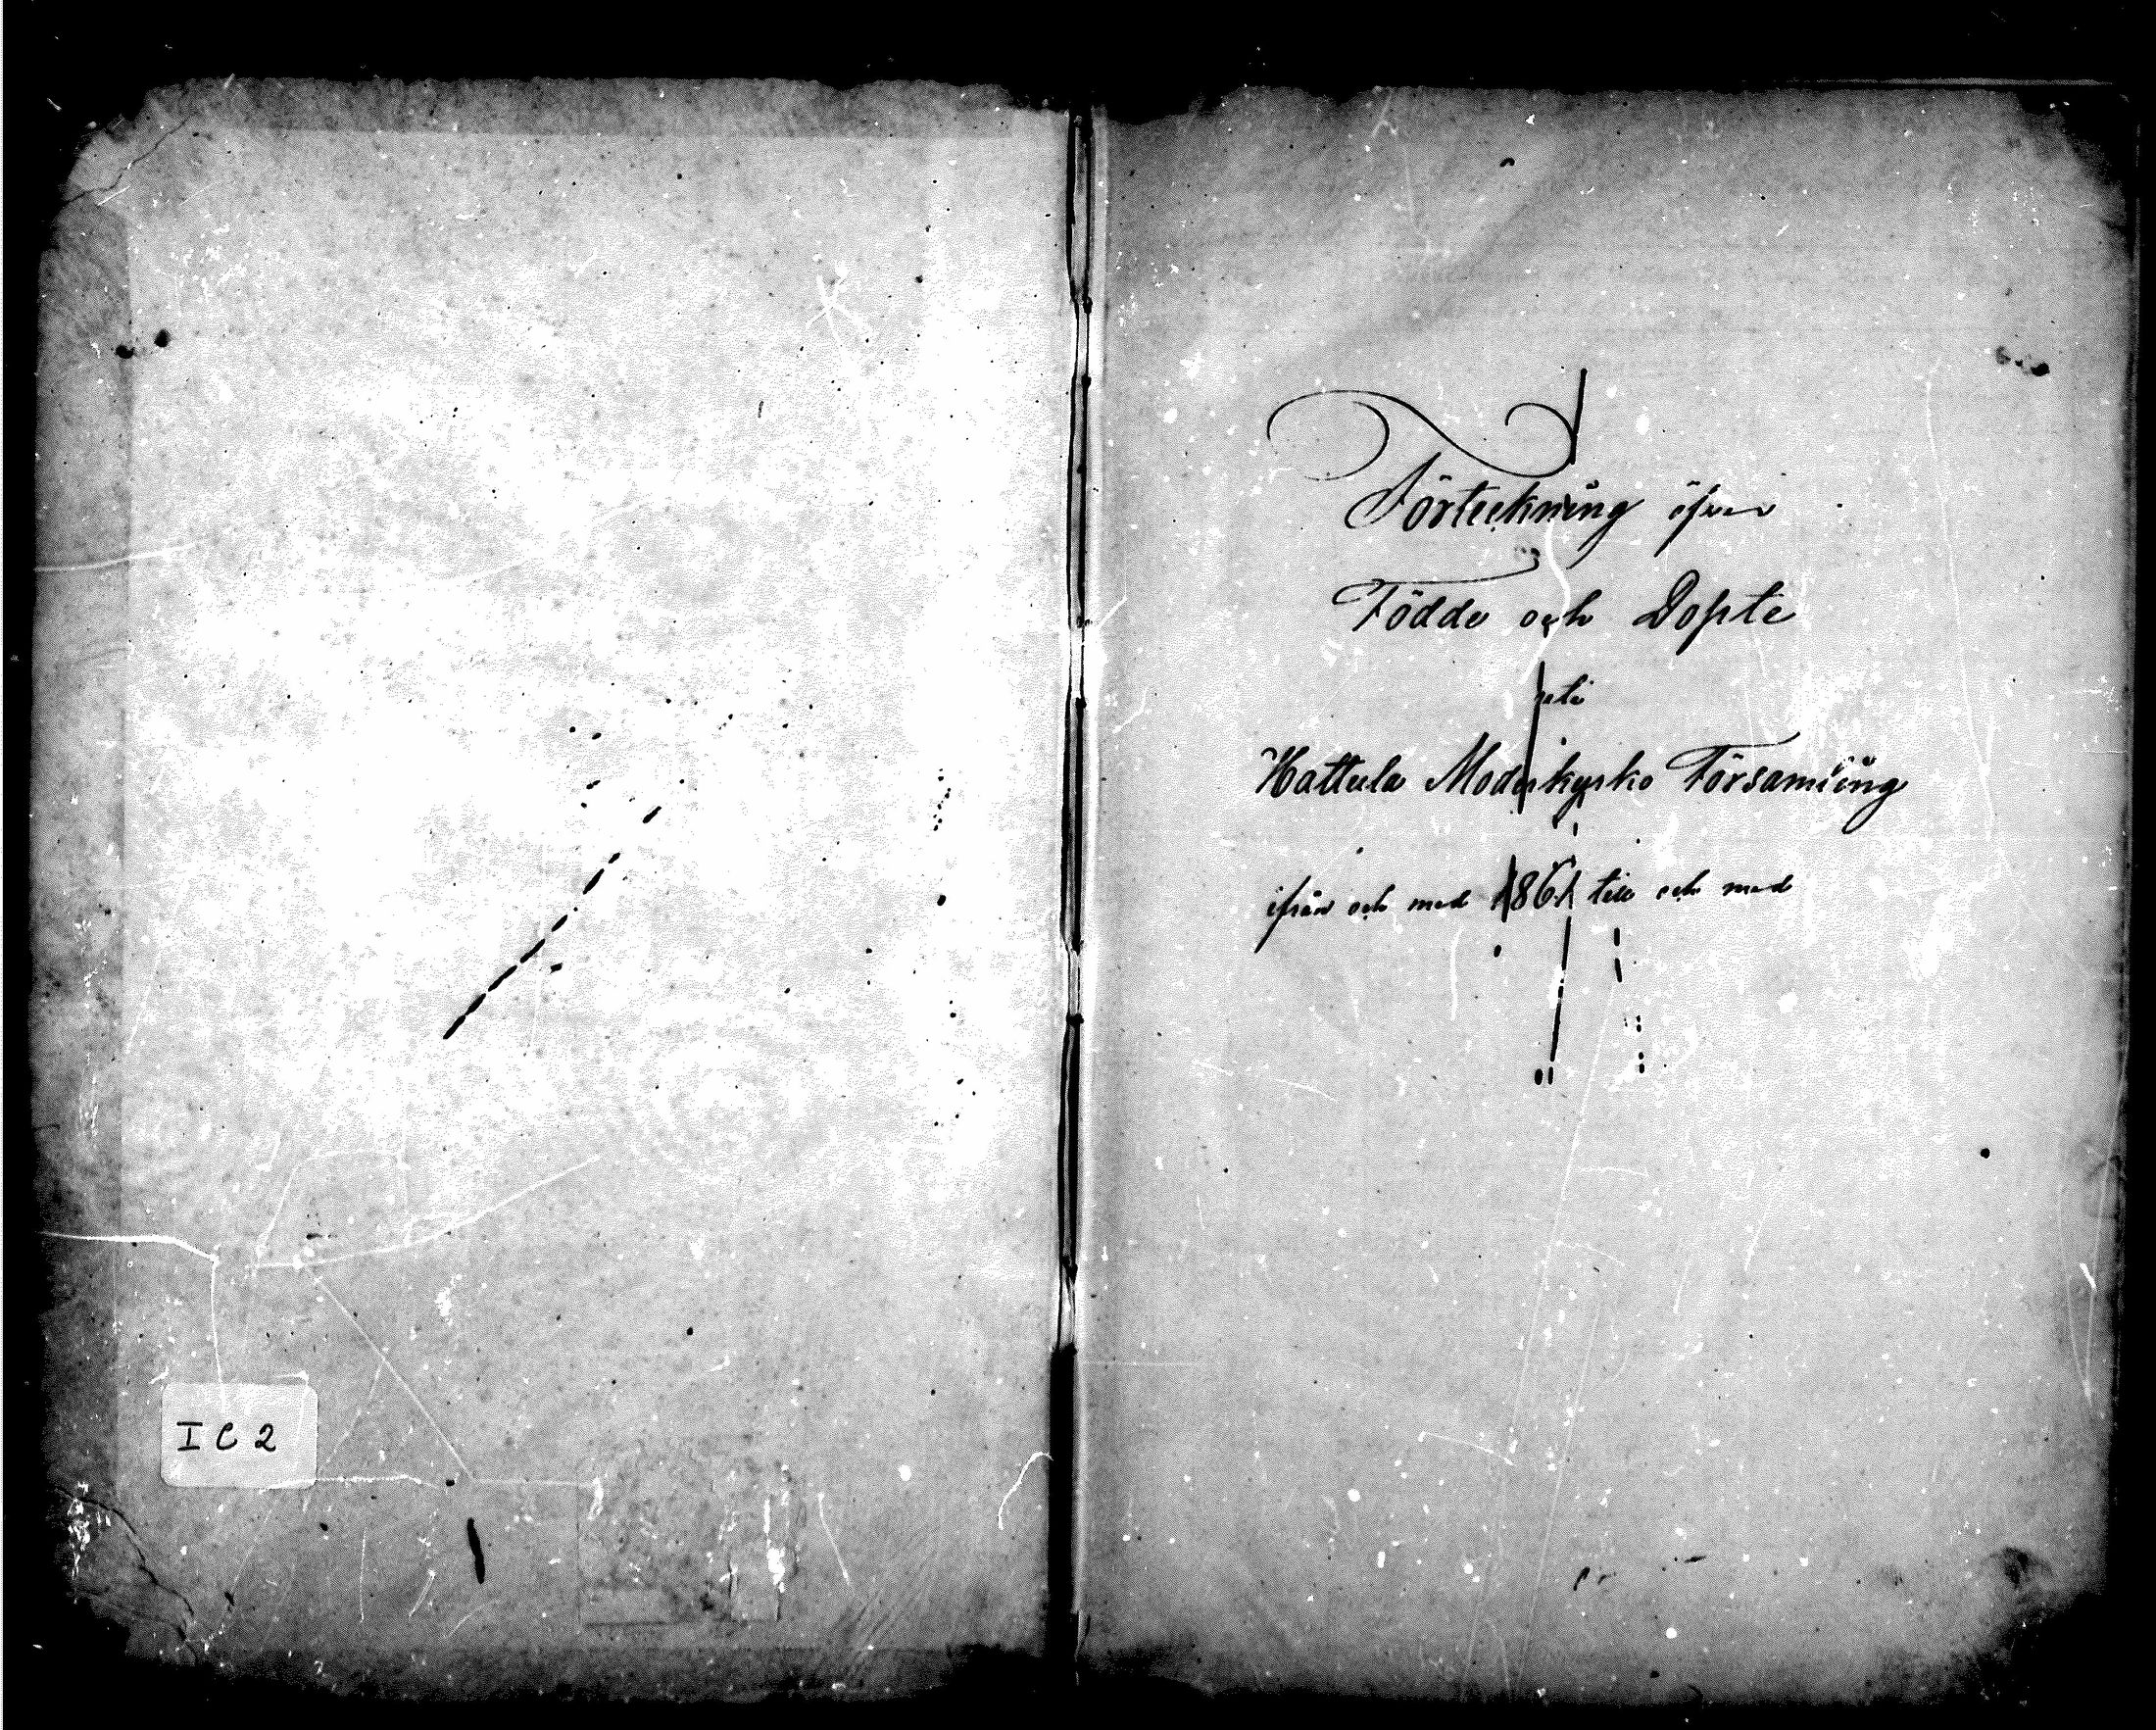 I C 2
Förteckning öfver
Födde och Döpte
uti
Hattula Moderkyrko Församling
ifrån och med 1861 till och med